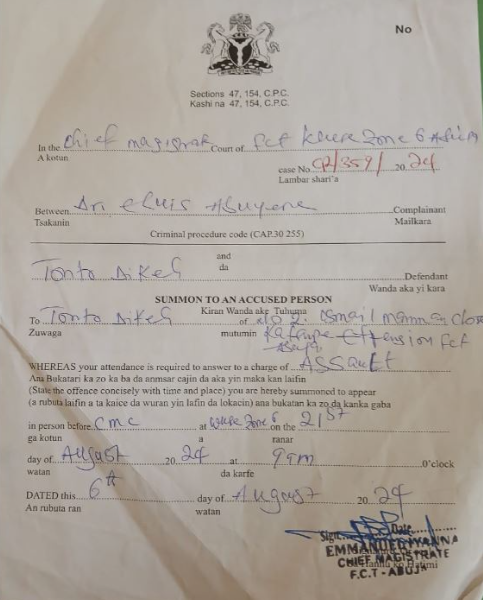 No
Sections 47, 154, C.P.C.
Kashi na 47, 154, C.P.C.
In the Chief Magistrate Court of FCT Wuse Zone 6 Abuja
A kotun
case No. CR/359/ 2024
Lambar shari'a
Between Complainant
Tsakanin Mailkara
Criminal procedure code (CAP.30 255)
and
da
Tonto Dikeh Defendant
Wanda aka yi kara
SUMMON TO AN ACCUSED PERSON
Kiran Wanda ake Tuhuma
To Tonto Dikeh of No 2. Ismail Close
Zuwaga mutumin Extension FCT
Abuja
WHEREAS your attendance is required to answer to a charge of Assault
Ana Bukatari ka zo ka ba da amsar cajin da aka yin maka kan laifin
(State the offence concisely with time and place) you are hereby summoned to appear
(a rubuta laifin a ta kaice da wuran yin lafin da lokacin) ana bukatan ka zo da kanka gaba
in person before CMC at Wuse Zone 6 on the 21st
ga kotun a ranar
day of August 2024 at 9am O'clock
watan da karfe
DATED this 6th day of August 2024
An rubuta ran watan
Sign Date
EMMANUEL IYANNA
CHIEF MAGISTRATE
F.C.T - ABUJA